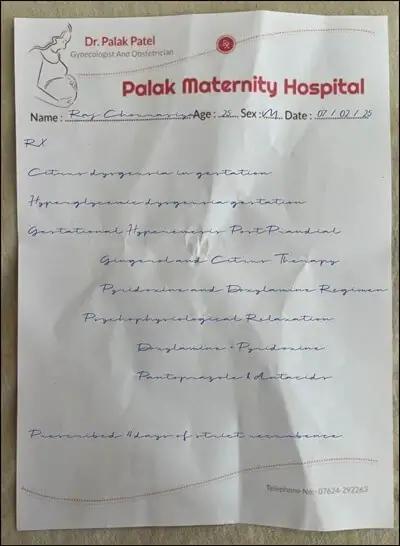 Dr. Palak Patel
Gynecologist And Obstetrician
Rx
Palak Maternity Hospital
Name : Raj Age : 25 Sex : M Date : 07 / 02 / 25
RX
Citrus dysgeusia in gestation
Hyperglycemic dysgeusia gestation
Gestational Hyperemesis Post Prandial
Gingerol and Citrus Therapy
Pyridoxine and Doxylamine Regimen
Psychophysiological Relaxation
Doxylamine + Pyridoxine
Pantoprazole & Antacids
Prescribed 4 days of strict recumbence
Telephone No:- 07624-292263